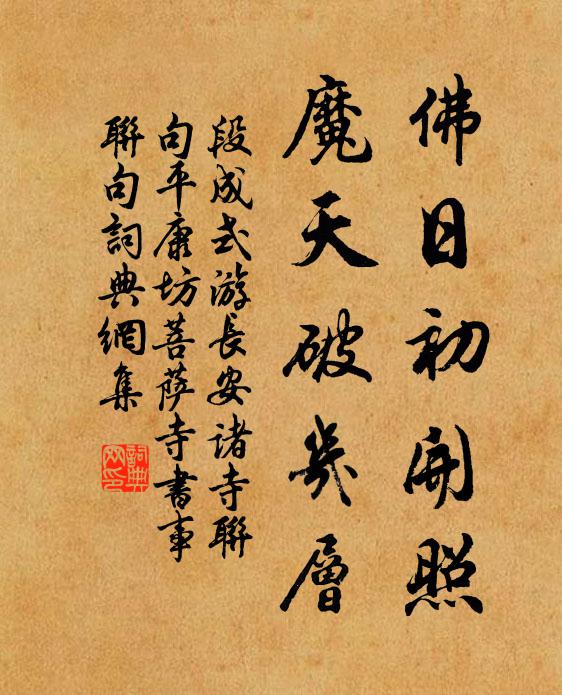 佛日初開照
魔天破幾層
段成式游長安諸寺聯
句平康坊菩萨寺書事
聯句詞典網集
詞典網印